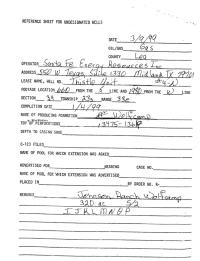 REFERENCE SHEET FOR UNDESIGNATED WELLS
DATE 3/9/99
OIL/GAS Gas
COUNTY Lea
OPERATOR Santa Fe Energy Resources Inc
ADDRESS 550 W Texas, Suite 1330 Midland TX 79701
LEASE NAME, WELL NO. Thistle Unit
FOOTAGE LOCATION 660 FROM THE S LINE AND 1980 FROM THE W LINE
SECTION 34 TOWNSHIP 23s RANGE 33e
COMPLETION DATE 1/4/99
NAME OF PRODUCING FORMATION Wolfcamp
TOP OF PERFORATIONS
DEPTH TO CASING SHOE
C-123 FILED
NAME OF POOL FOR WHICH EXTENSION WAS ASKED
ADVERTISED FOR HEARING CASE NO.
NAME OF POOL FOR WHICH EXTENSION WAS ADVERTISED
PLACED IN BY ORDER NO. R-
REMARKS Johnson Ranch Wolfcamp
320 ac S2
I J K L M N O P